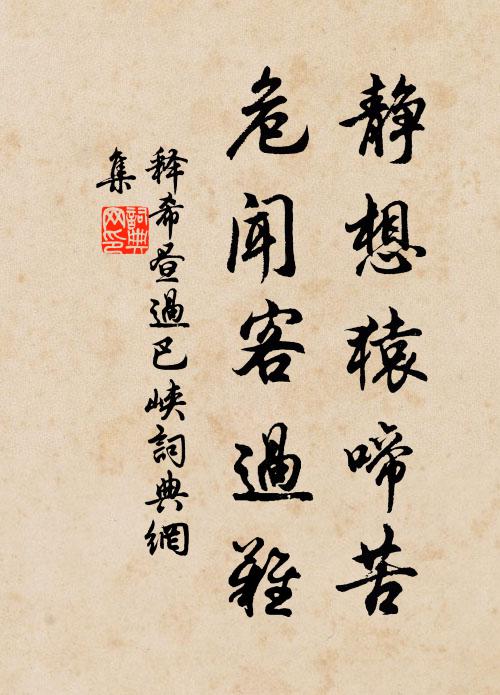 静想猿啼苦
危闻客過難
释希昼過巴峽詞典網
集
詞典网印